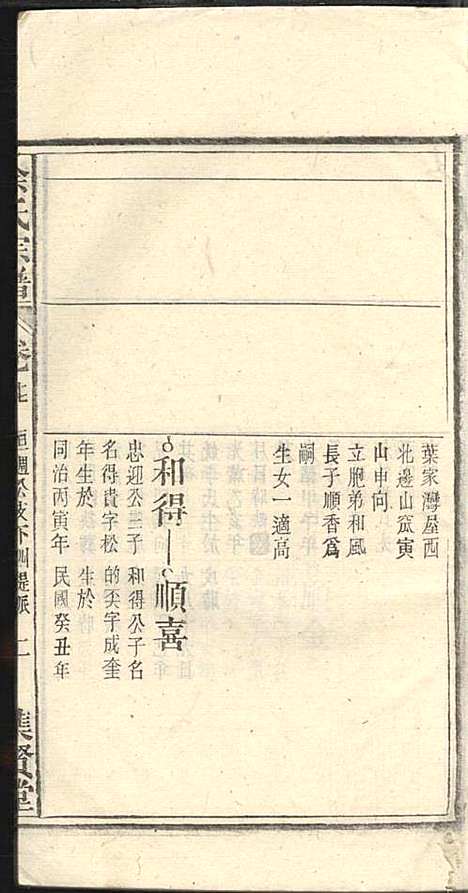 葉家灣屋西
北邊山㝎寅
山申向
立胞弟和風
長子順香爲
嗣
生女一適高
和得 順喜
忠迎公三子 和得公子名
名得貴字松 的奀字成奎
年生於 生於
同治丙寅年 民國癸丑年
余氏宗譜 卷七
集賢堂